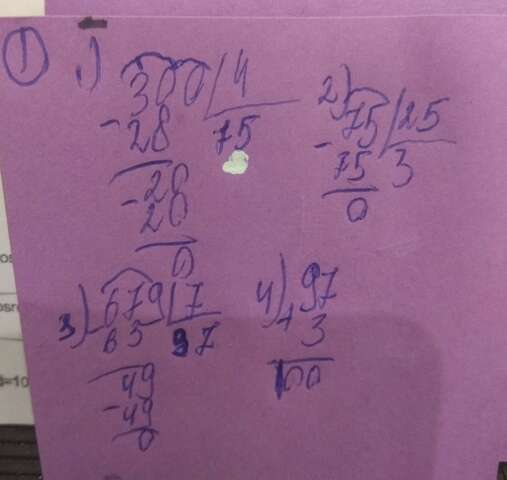 ① 1) 300 4
- 28 75
- 20
20
0
2) 75 25
- 75 3
0
3) 679 7
- 63 97
49
- 49
0
4) 97
+ 3
100